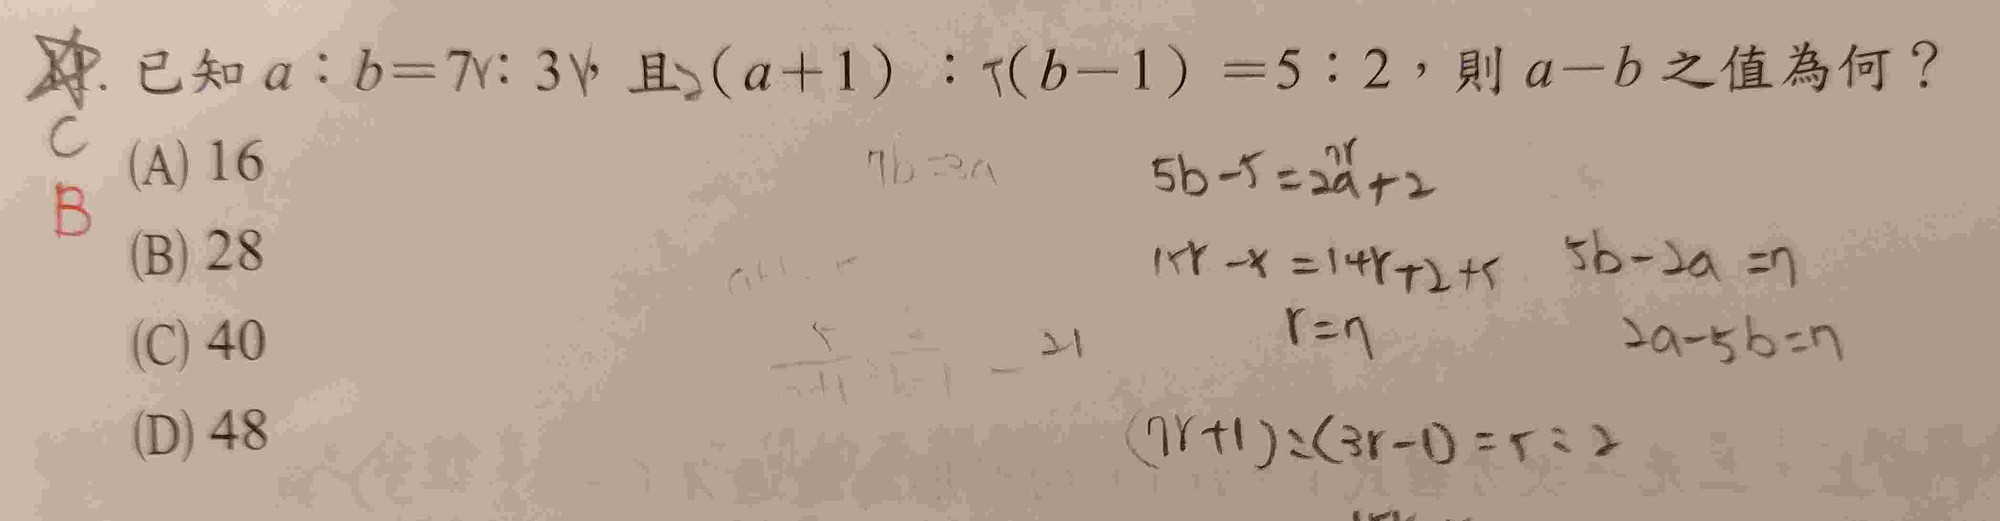 已知 a：b＝7r：3r，且2（a＋1）：5（b－1）＝5：2，則 a－b 之值為何？
C
(A) 16
B
(B) 28
(C) 40
(D) 48
7b=3a
5b-5=2a+2
7r
15r-x=14r+2+5
r=7
5b-2a=7
2a-5b=7
21
(7r+1):(3r-1)=5:2